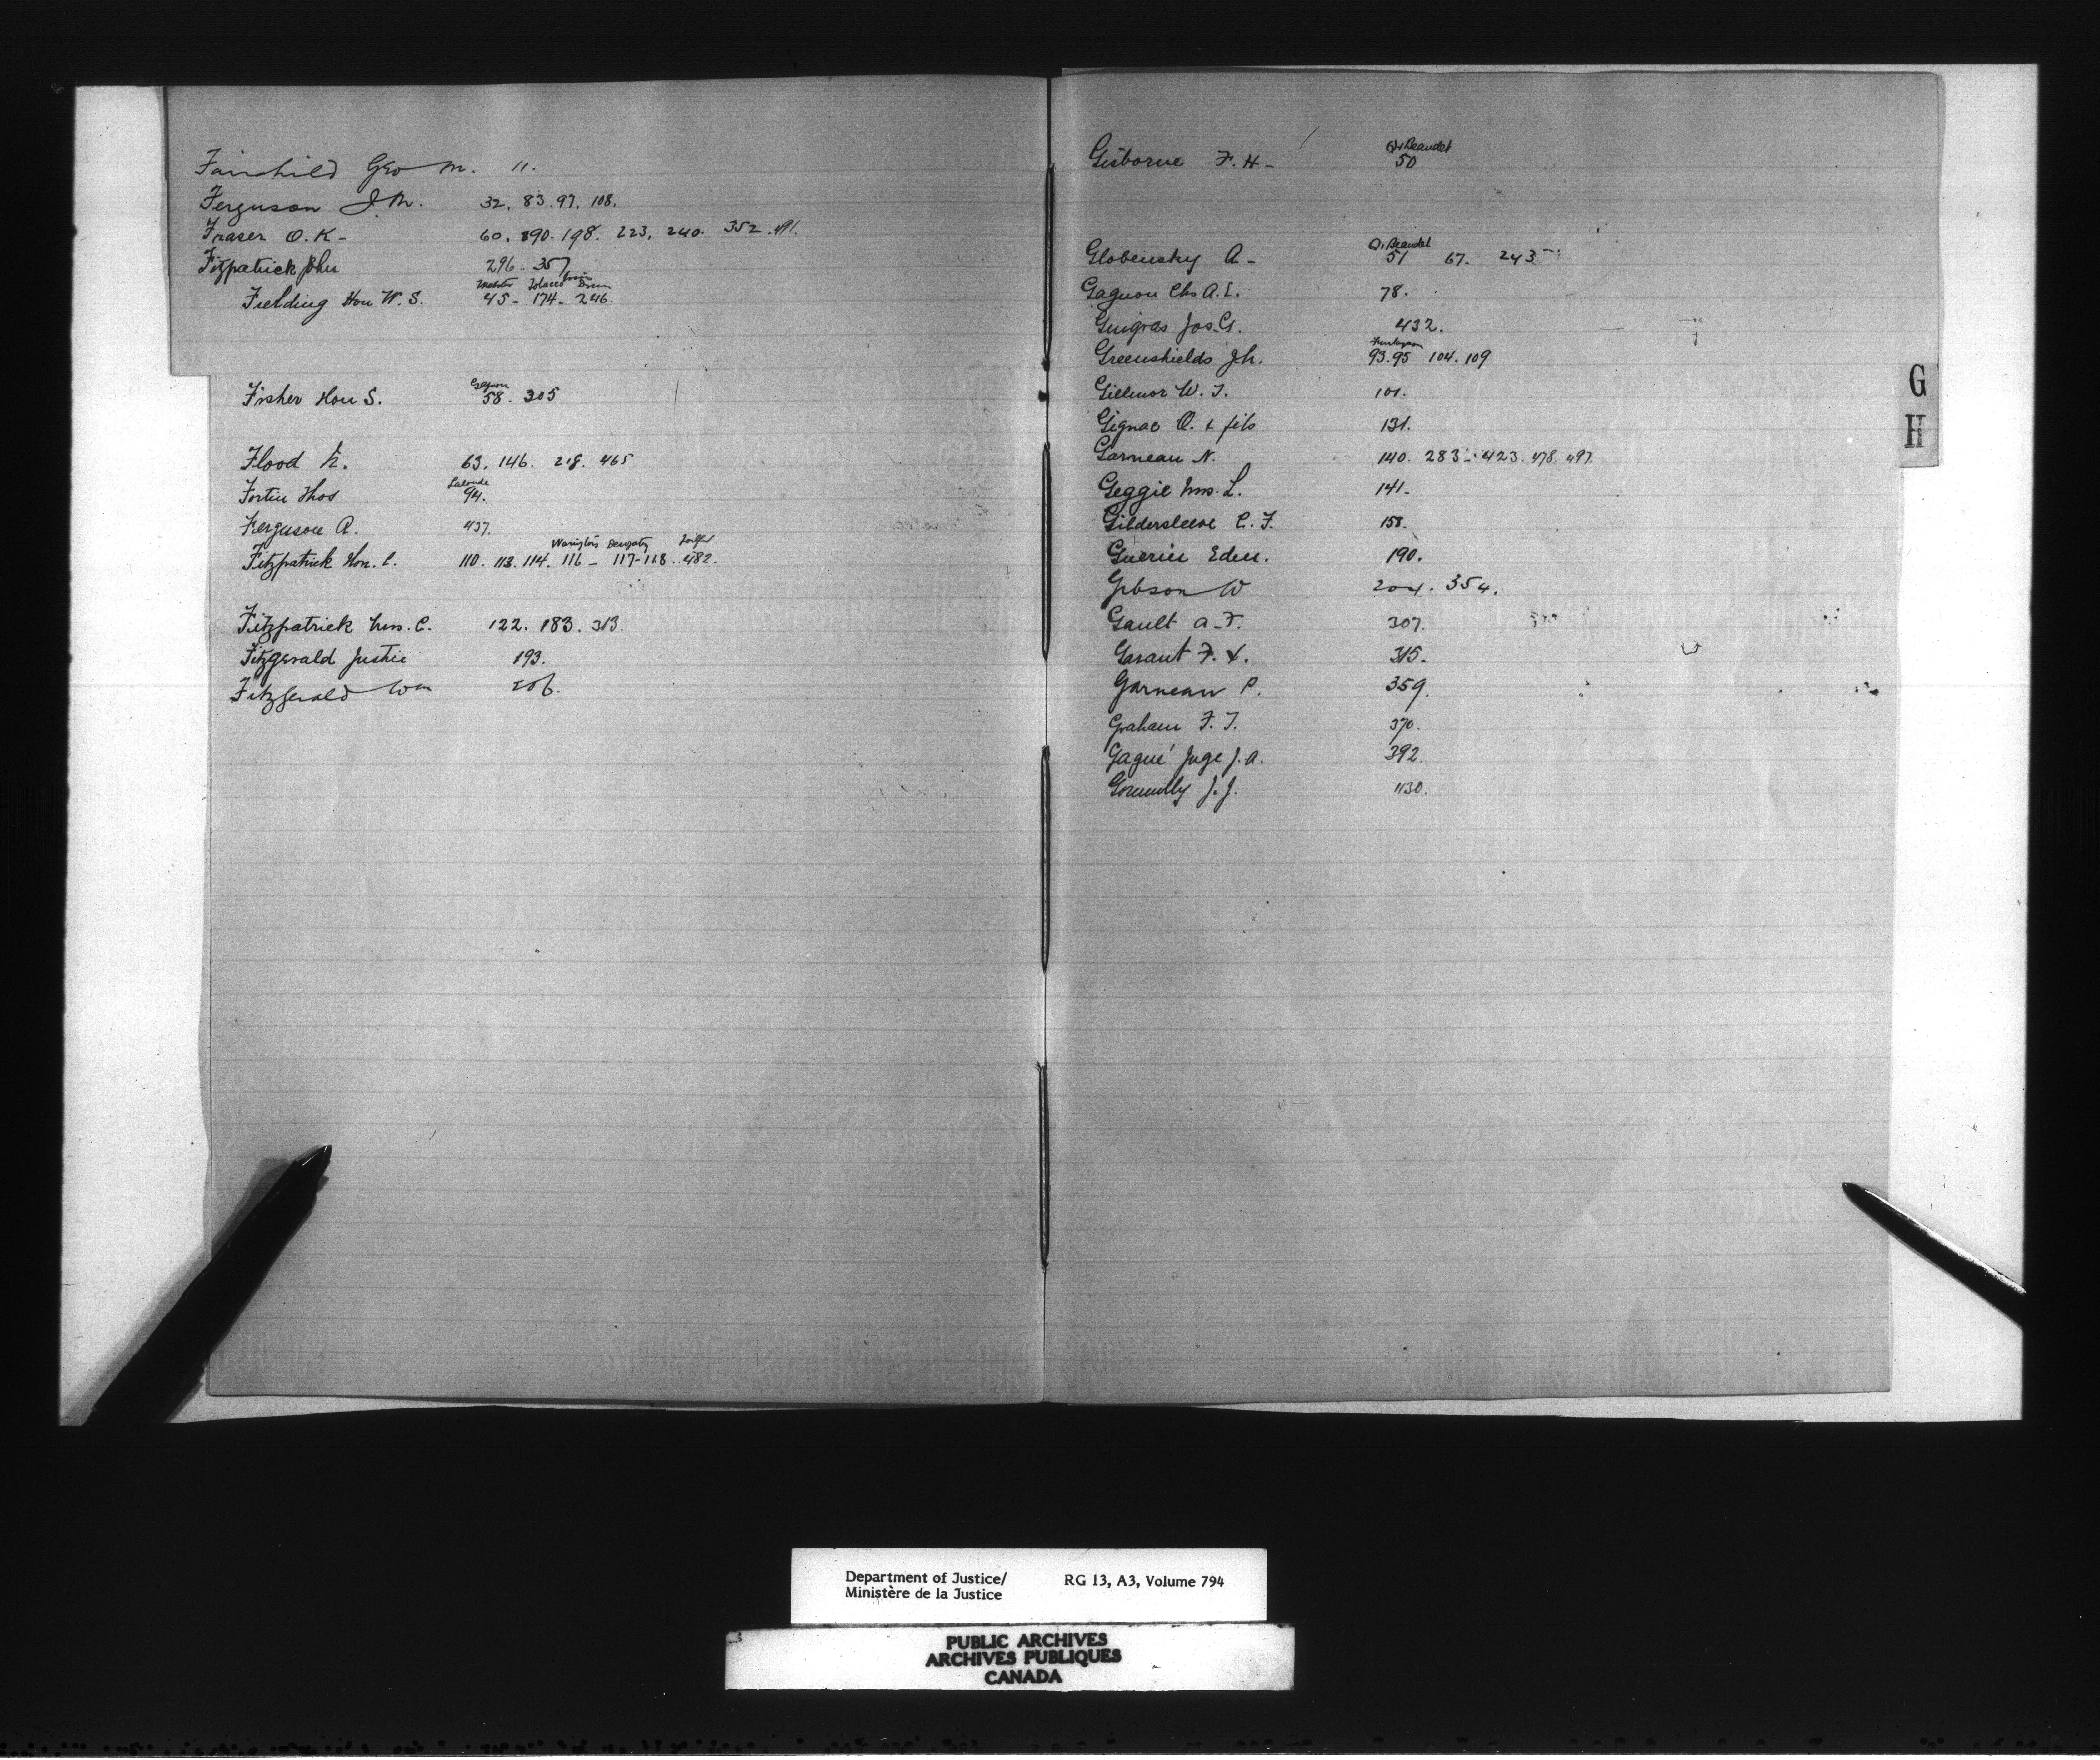 Fairchild Geo M. 11.
Ferguson J. M. 32. 83. 97. 108.
Fraser O. K - 60. 190. 198. 223. 240. 352. 491.
Fitzpatrick John 296 - 357
Tobacco
Fielding Hon W. S. 45 - 174 - 246.
Gagnon
Fisher Hon S. 58. 305
Flood 63. 146. 218. 465
Lalonde
Fortin Thos 94.
Ferguson A. 437.
Fitzpatrick Hon. C. 110. 113. 114. 116 - 117-118. 482.
Fitzpatrick Mrs. C. 122. 183. 313.
Fitzgerald Justice 193.
Fitzgerald Wm 206.
Beaudet
Gisborne F. H - 50
Beaudet
Globensky A - 51 67. 243
Gagnon Chs A. E. 78.
Guigras Jos. G. 432.
Greenshields J. N. 93. 95 104. 109
Gillmor W. T. 101.
Gignac O. & fils 131.
Garneau N. 140. 283 - 423. 478. 497.
Geggie Mrs. L. 141 -
Gildersleeve C. F. 158.
Guerin Edm. 190.
Gibson W 204. 354.
Gault A. F. 307.
Garant F. X. 315.
Garneau P. 359.
Graham F. T. 370.
Gagné Juge J. A. 392.
Gormully J. J. 430.
G
H
Department of Justice/ RG 13, A3, Volume 794
Ministère de la Justice
PUBLIC ARCHIVES
ARCHIVES PUBLIQUES
CANADA